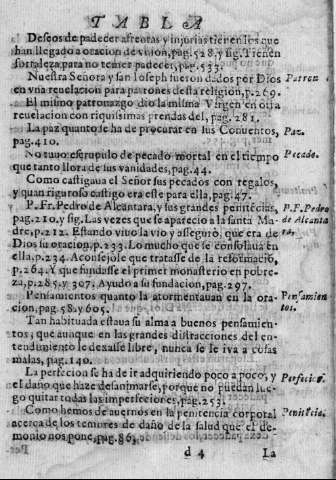 TABLA
Deseos de padecer afrentas y injurias tienen los que
han llegado a oracion de vnion, pag. 528, y sig. Tienen
fortaleza para no temer padecer, pag. 533.
Nuestra Señora y san Ioseph fueron dados por Dios
Patron
en vna reuelacion para patrones desta religion, p. 269.
El mismo patronazgo dio la misma Virgen en otra
reuelacion con riquissimas prendas del, pag. 281.
La paz quanto se ha de procurar en sus Conuentos,
Paz.
pag. 410.
No tuuo escrupulo de pecado mortal en el tiempo
Pecado.
que tanto llora de sus vanidades, pag. 44.
Como castigaua el Señor sus pecados con regalos,
y quan riguroso castigo era este para ella, pag. 47.
P. Fr. Pedro de Alcantara, y sus grandes penitēcias,
P. F. Pedro
pag. 210. y sig. Las vezes que se aparecio a la santa Ma-
de Alcanta
dre, p. 212. Estando viuo la vio y asseguró, que era de
ra.
Dios su oracion, p. 233. Lo mucho que se consolaua en
ella, p. 234. Aconsejole que tratasse de la reformaciō,
p. 264. Y que fundasse el primer monasterio en pobre-
za, p. 285, y 307. Ayudo a su fundacion, pag. 297.
Pensamientos quanto la atormentauan en la ora-
Pensamien
cion, pag. 58. y 605.
tos.
Tan habituada estaua su alma a buenos pensamien-
tos, que aunque en las grandes distracciones del en-
tendimiento le dexasse libre, nunca se le iva a cosas
malas, pag. 140.
La perfecion se ha de ir adquiriendo poco a poco, y
Perfeciō.
el daño que haze desanimarse, porque no puedan lue-
go quitar todas las imperfeciones, pag. 253.
Como hemos de auernos en la penitencia corporal
Penitēcia.
acerca de los temores de daño de la salud que el de-
monio nos pone, pag. 86.
d 4 La